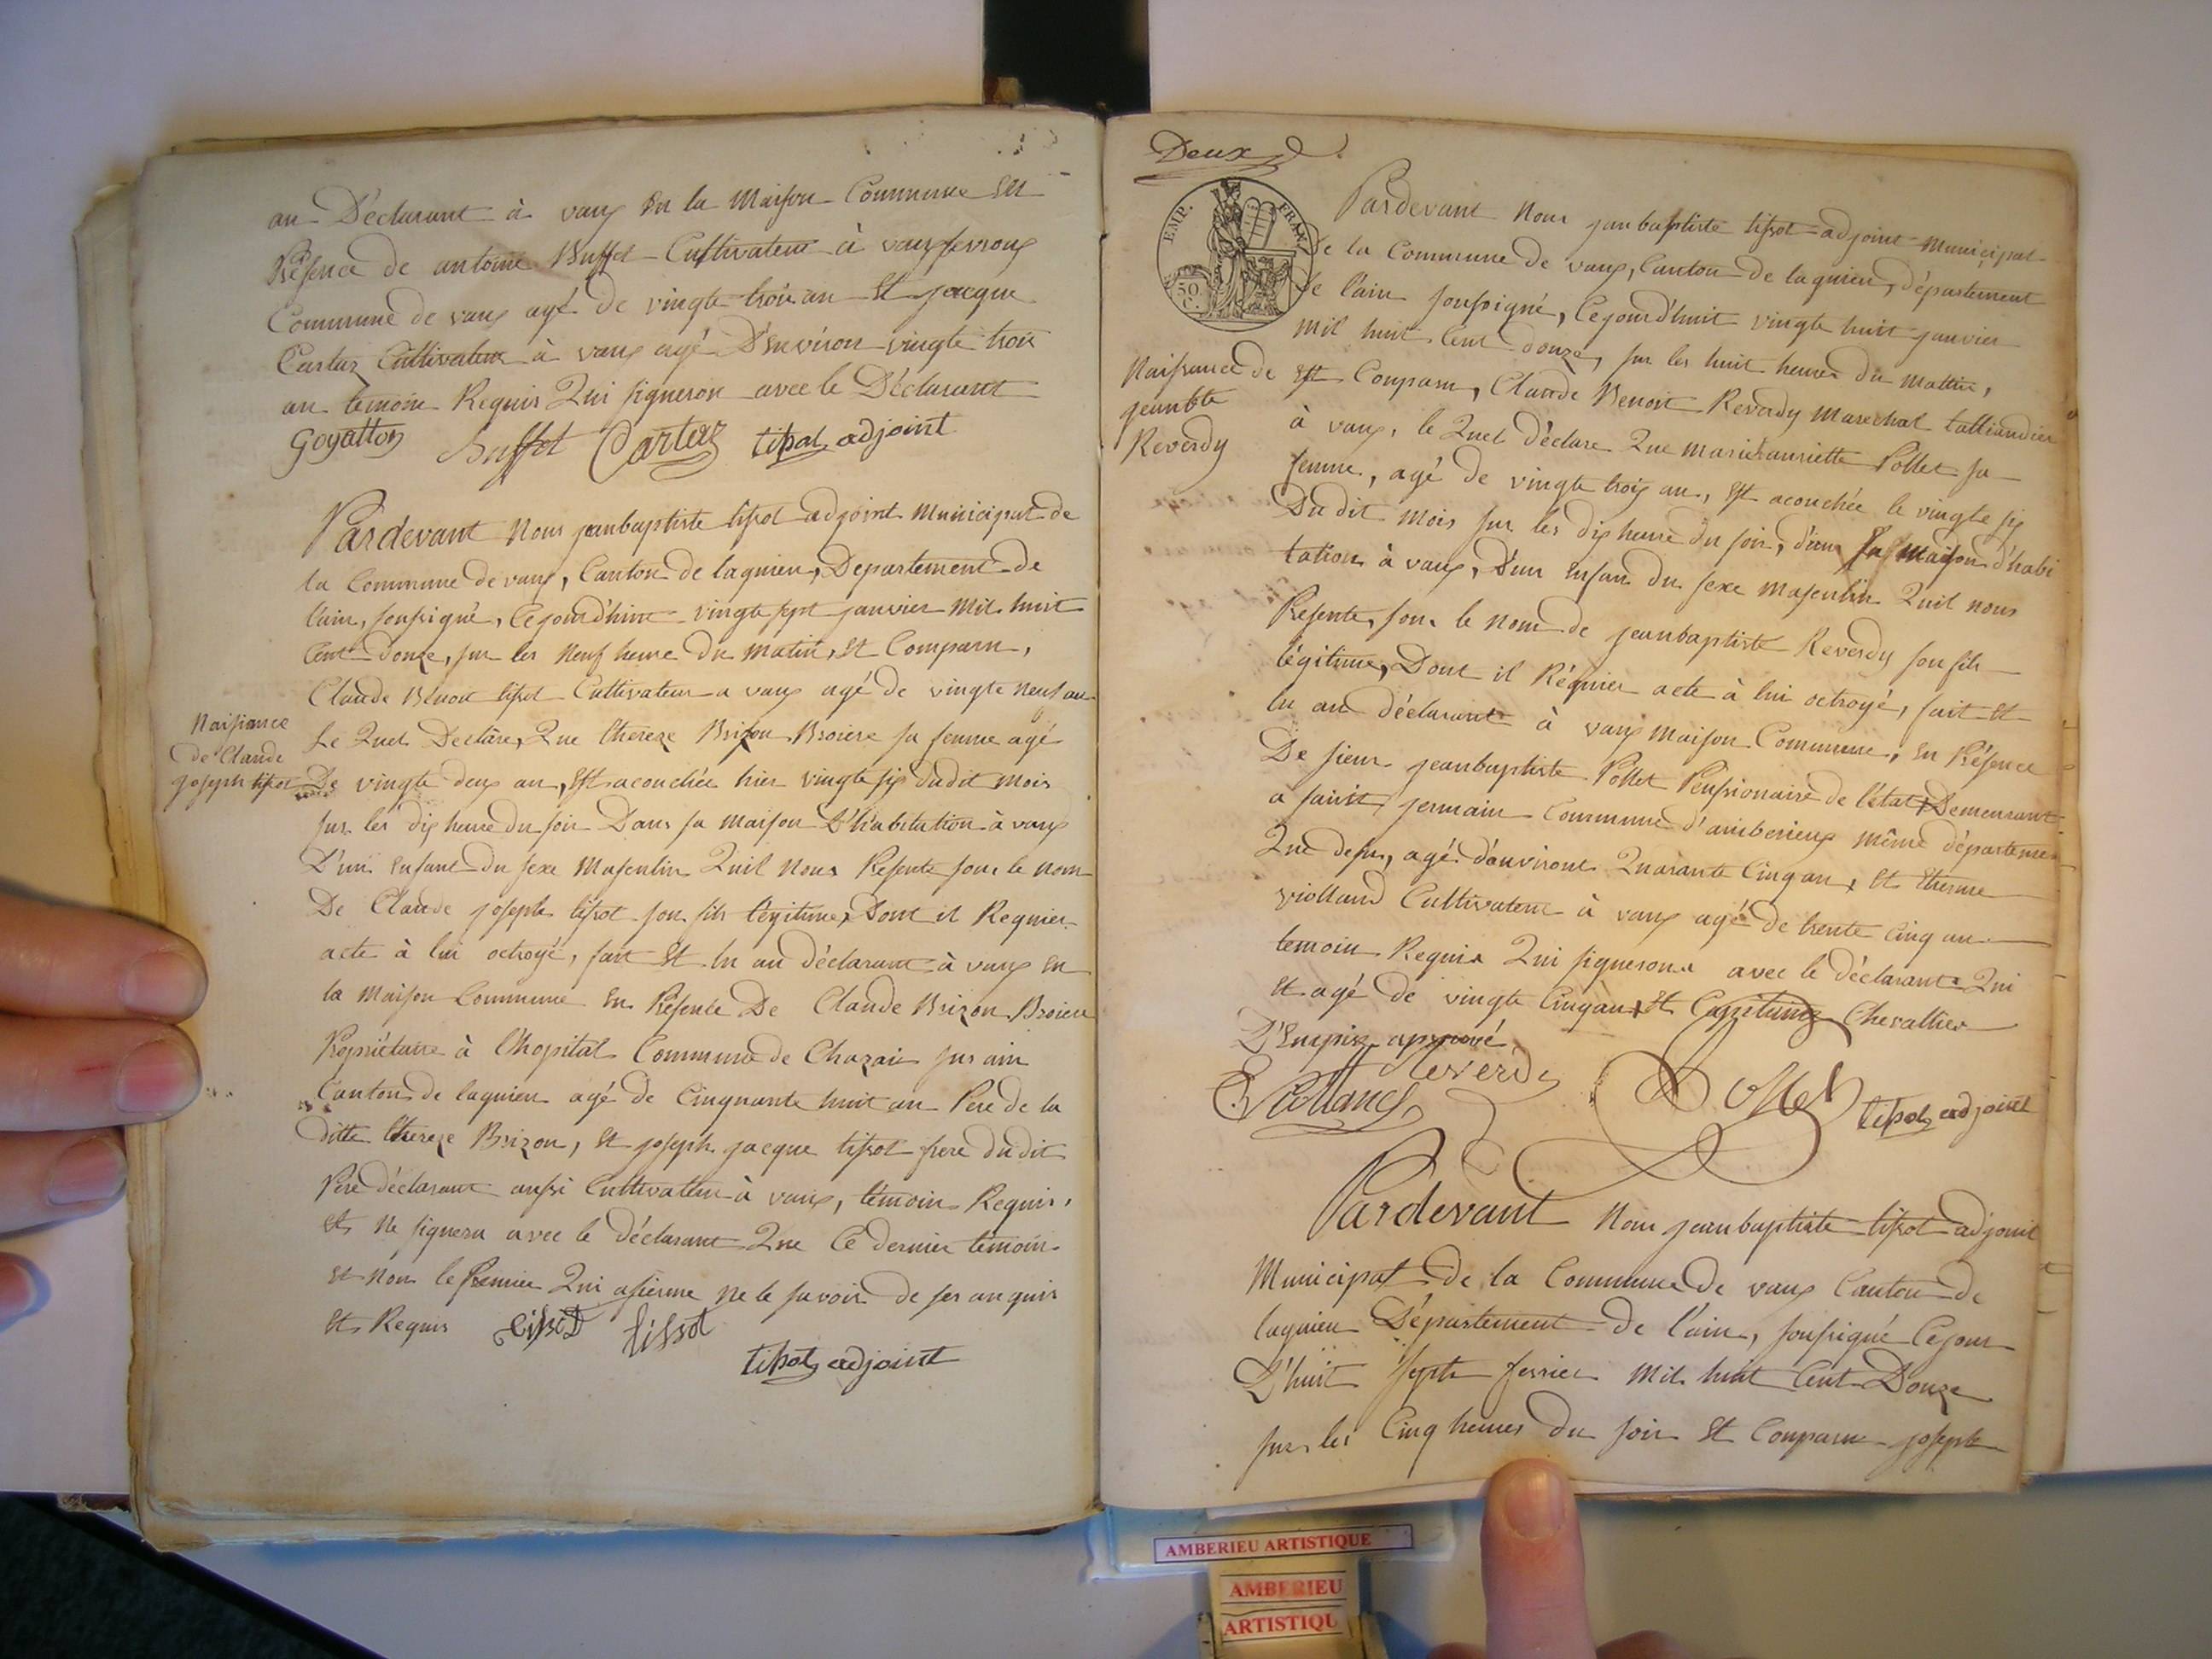 au Déclarant à vaux En la Maison Commune En
Présence de antoine Buffet Cultivateur à vauxfevroux
Commune de vaux agé de vingte trois an Et jacque
Cartaz Cultivateur à vaux agé D'Environ vingte trois
an temoin Requis Qui signeron avec le Déclarant
Goyatton Buffet Cartaz tissot adjoint
Pardevant Nous jeanbaptiste tissot adjoint Municipal de
la Commune de vaux, Canton de lagnieu, Département de
l'ain, soussigné, Cejourd'huit vingte sept janvier Mil huit
Cent Douze, sur les Neuf heure du Matin, Et Comparu,
Claude Benoit tissot Cultivateur a vaux agé de vingte neuf an
Le Quel Declare, Que thereze Brizon Broiere sa femme agé
Naissance
de Claude
joseph tissot
De vingte deux an, Est acouchée hier vingte six dudit Mois
sur les dix heure du soir Dans sa Maison D'habitation à vaux
D'un Enfant du sexe Masculin Quil Nous Présente sous le nom
De Claude joseph tissot son fils légitime, Dont il Requier
acte à lui octroyé, fait Et lu au déclarant à vaux En
la Maison Commune En Présence De Claude Brizon Broiere
Propriétaire à l'hopital Commune de Chazai sur ain
Canton de lagnieu agé de Cinquante huit an Pere de la
ditte thereze Brizon, Et joseph jacque tissot frere dudit
Pere déclarant aussi Cultivateur à vaux, témoin Requis,
Et Ne signera avec le Déclarant Que Ce dernier témoin
Et Non le Premier Qui afferme Ne le savoir de ses anquis
Et Requis tissot tissot
tissot adjoint
Deux
EMP. FRAN.
50 C.
Pardevant Nous janbaptiste tissot adjoint Municipal
De la Commune de vaux, Canton de lagnieu, département
De l'ain soussigné, Cejourd'huit vingte huit janvier
Mil huit Cent douze, sur les huit heures du Mattin,
Naissance de
jeanbte
Reverdy
Est Comparu, Claude Benoit Reverdy Marechal talliandier
à vaux, le Quel déclare Que marie auriette Pollet sa
femme, agé de vingte trois an, Est acouchée le vingte six
Du dit Mois sur les dix heure du soir, dans sa Maison d'habi
tation à vaux, D'un Enfant du sexe Masculin Quil nous
Présente, sous le nom de jeanbaptiste Reverdy son fils
légitime, Dont il Réquier acte à lui octroyé, fait Et
lu au déclarant à vaux Maison Commune, En Présence
De sieur jeanbaptiste Pollet Pensionaire de l'état Demeurant
a saint jermain Commune d'amberieux même départemen
Que desus, agé d'anviront Quarante Cinq an, Et Etienne
violland Cultivateur à vaux agé de trente cinq an
temoin Requis Qui signerons avec le déclarant Qui
Et agé de vingte Cinq an Et Chevallier
D'Empire approuvé
Reverdy
E. Violland Pollet tissot adjoint
Pardevant Nous jeanbaptiste tissot adjoint
Municipal De la Commune De vaux Canton de
lagnieu Département De l'ain, soussigné Cejour
D'huit septe fevrier Mil huit Cent Douze
sur les Cinq heures Du soir Et Comparu joseph
AMBERIEU ARTISTIQUE
AMBERIEU
ARTISTIQU